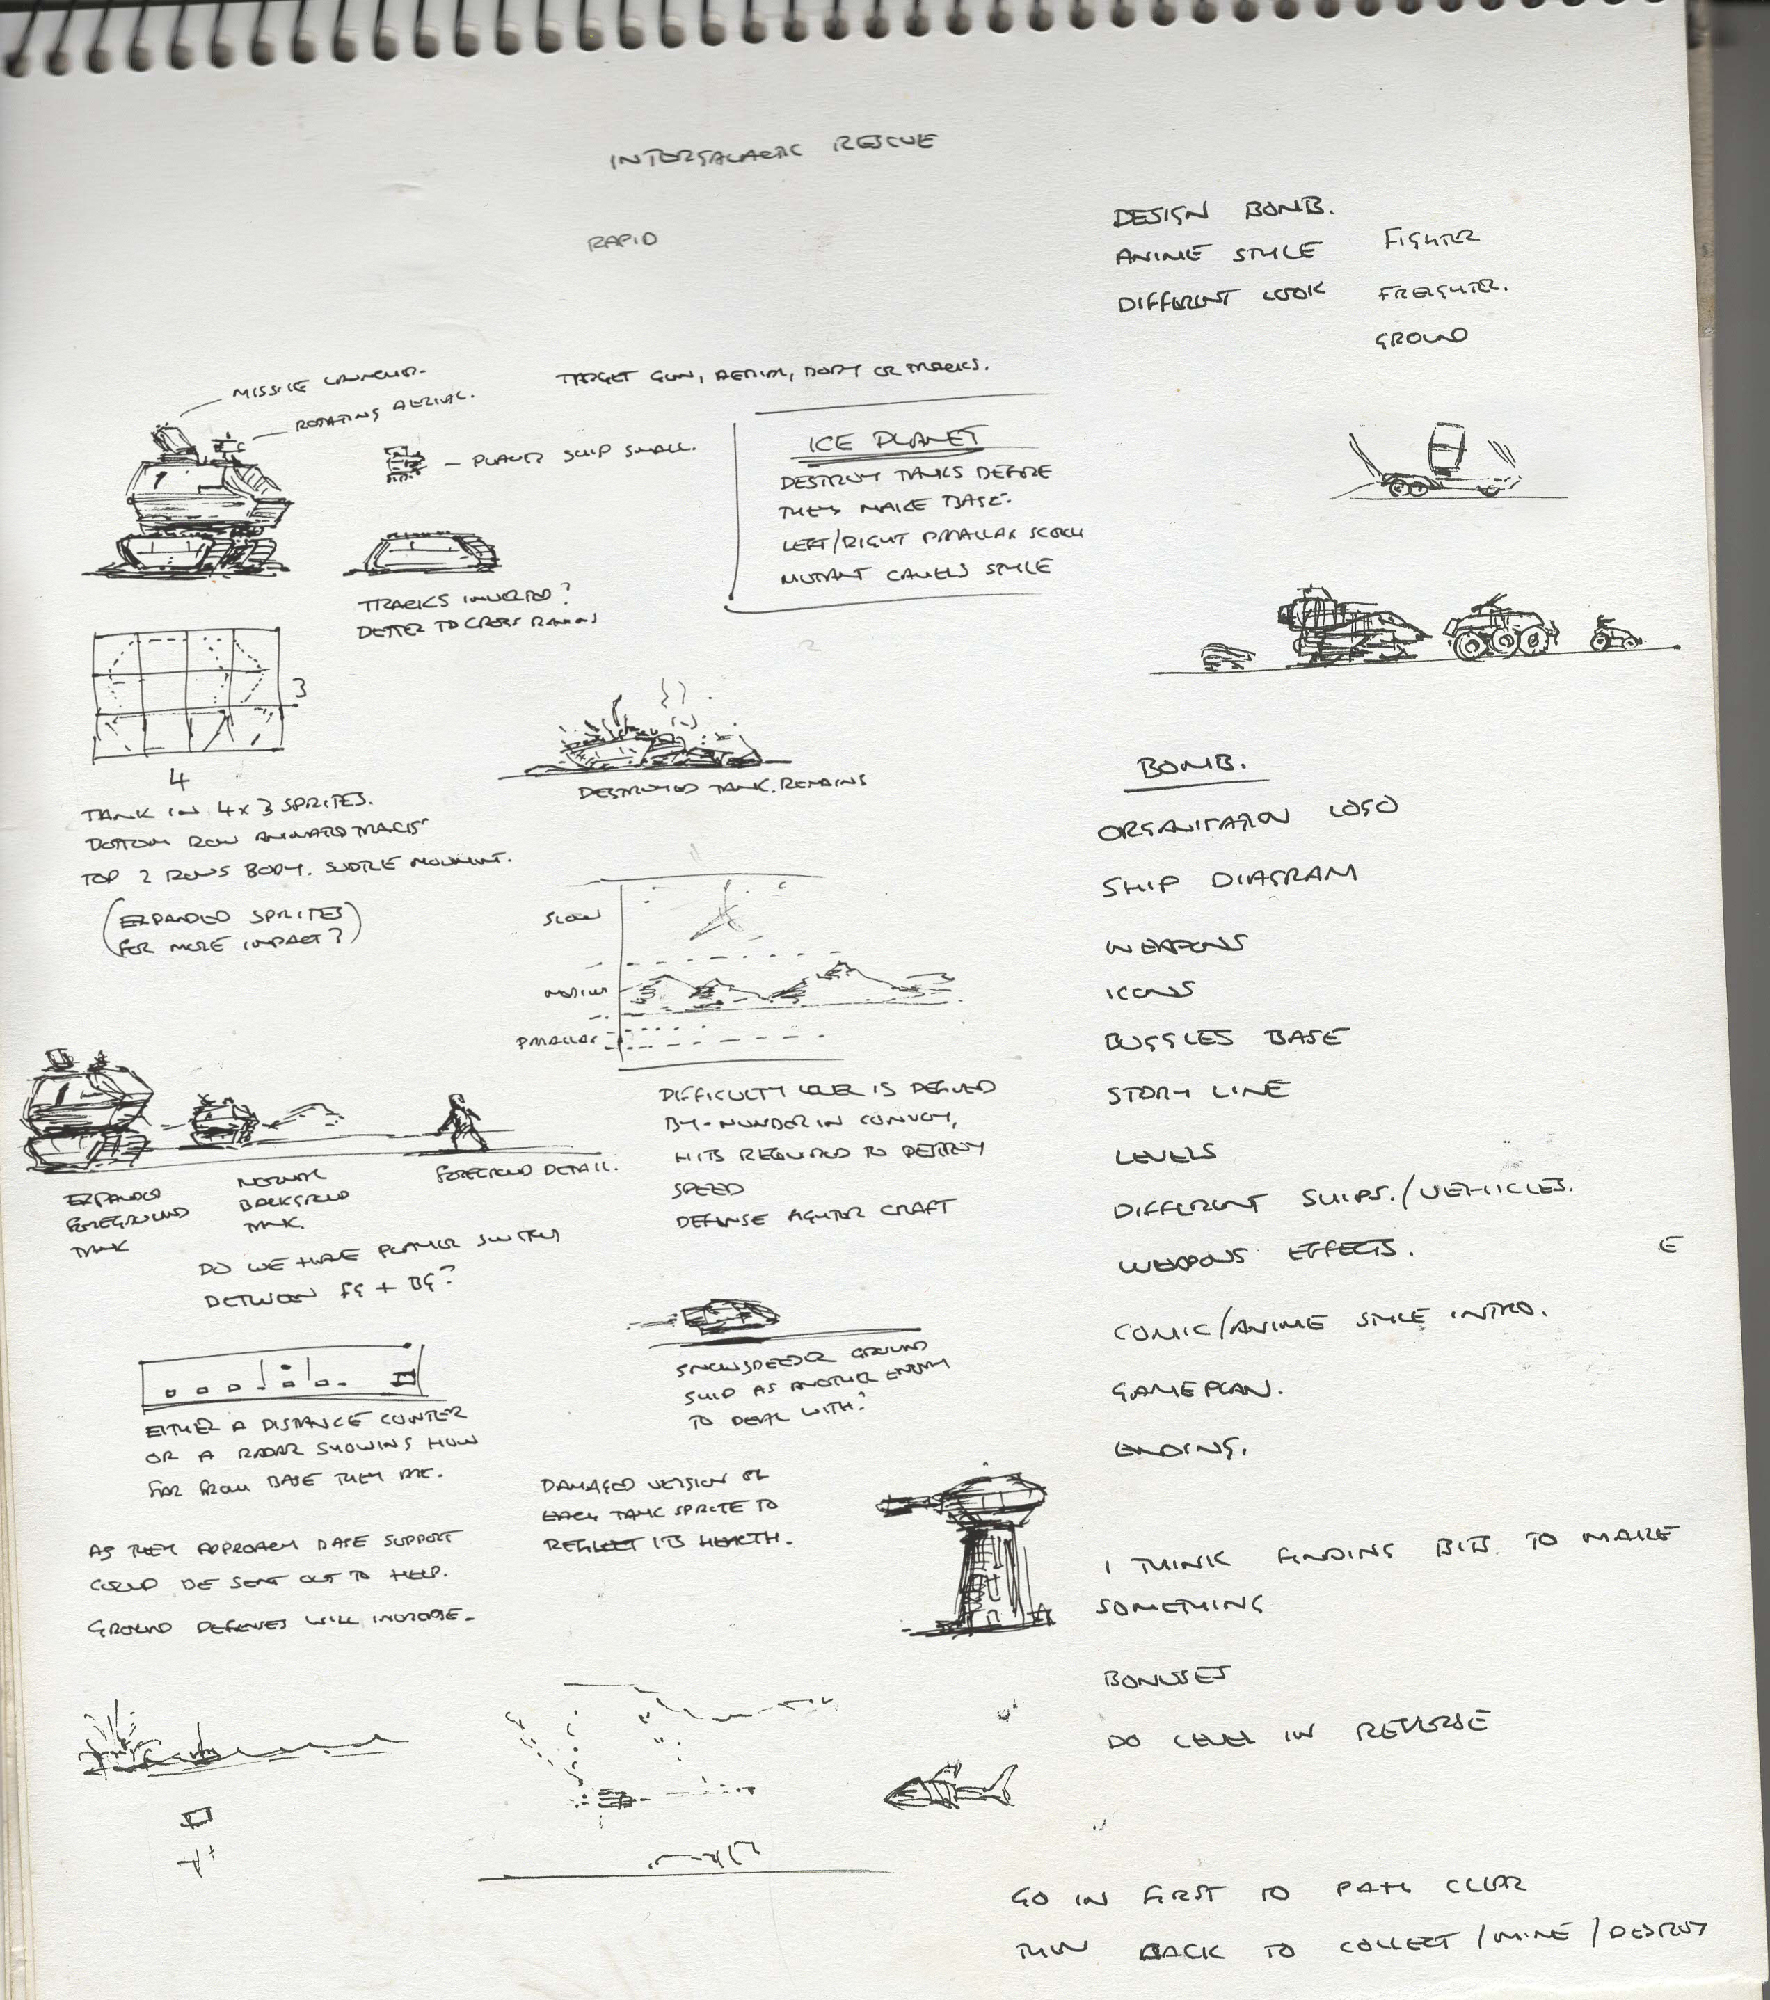 INTERGALACTIC RESCUE
RAPID
DESIGN BOMB.
ANIME STYLE FIGHTER
DIFFERENT LOOK FREIGHTER.
GROUND
MISSILE LAUNCHER.
ROTATING AERIAL.
TARGET GUN, AERIAL, BODY OR TRACKS.
- PLAYER SHIP SMALL.
ICE PLANET
DESTROY TANKS BEFORE
THEY MAKE BASE.
LEFT/RIGHT PARALLAX SCROLL
MUTANT CAMELS STYLE
TRACKS INVERTED?
BETTER TO CROSS RAVINS
3
4
TANK IN 4x3 SPRITES.
BOTTOM ROW ANIMATED TRACKS
TOP 2 ROWS BODY. SUBTLE MOVEMENT.
(EXPANDED SPRITES
FOR MORE IMPACT?)
DESTROYED TANK REMAINS
SLOW
MEDIUM
PARALLAX
EXPANDED
FOREGROUND
TANK
NORMAL
BACKGROUND
TANK.
FOREGROUND DETAIL.
DO WE HAVE PLAYER SWITCH
BETWEEN FG + BG?
DIFFICULTY LEVEL IS DEFINED
BY - NUMBER IN CONVOY,
HITS REQUIRED TO DESTROY
SPEED
DEFENSE FIGHTER CRAFT
SNOWSPEEDER GROUND
SHIP AS ANOTHER ENEMY
TO DEAL WITH?
EITHER A DISTANCE COUNTER
OR A RADAR SHOWING HOW
FAR FROM BASE THEY ARE.
DAMAGED VERSION OF
EACH TANK SPRITE TO
REFLECT ITS HEALTH.
AS THEY APPROACH BASE SUPPORT
COULD BE SENT OUT TO HELP.
GROUND DEFENSES WILL INCREASE.
BOMB.
ORGANITATION LOGO
SHIP DIAGRAM
WEAPONS
ICONS
BUGGLES BASE
STORY LINE
LEVELS
DIFFERENT SHIPS./VEHICLES.
WEAPONS EFFECTS.
E
COMIC/ANIME STYLE INTRO.
GAMEPLAN.
ENDING.
I THINK FINDING BITS TO MAKE
SOMETHING
BONUSES
DO LEVEL IN REVERSE
GO IN FIRST TO PATH CLEAR
THEN BACK TO COLLECT/MINE/DESTROY